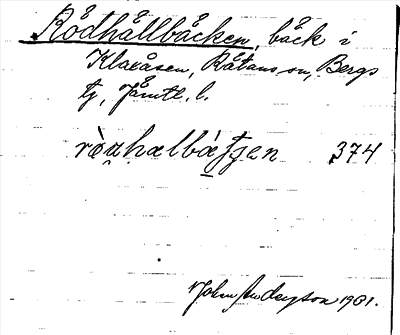 Rödhällbäcken, bäck i
Klaxåsen, Rätans sn, Bergs
tg, Jämtl. l.
374
John Anderzson 1901.